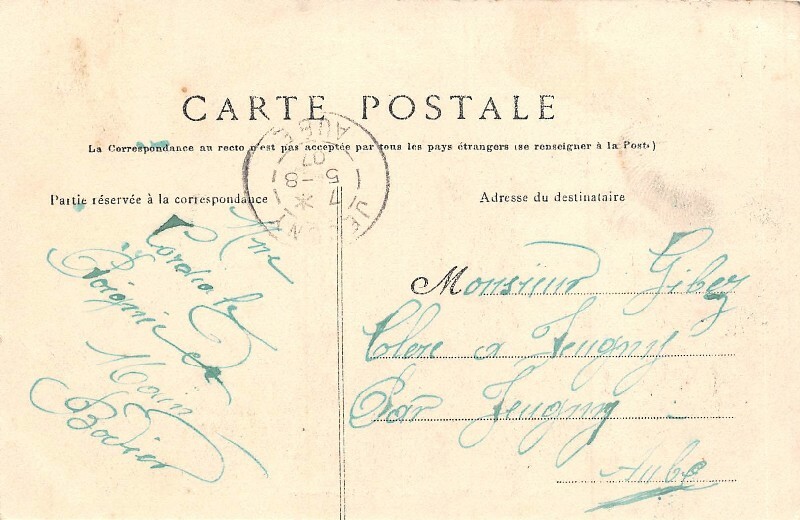 CARTE POSTALE
La Correspondance au recto n'est pas acceptée par tous les pays étrangers (se renseigner à la Poste)
Partie réservée à la correspondance
Adresse du destinataire
AUBE
7
5-8
07
Une
Cordiale
Poignée de
Main
Bodier
Monsieur Gibez
Jeugny
Par Jeugny
Aube